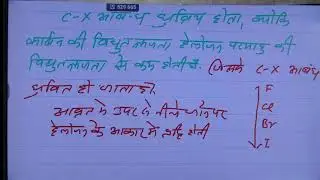 C-X आबन्ध ध्रुवित होता, क्योंकि
कार्बन की विद्युतऋणता हैलोजन परमाणु की
विद्युतऋणता से कम होती है. जिसके C-X आबंध
ध्रुवित हो जाता है।
F
Cl
Br
I
ऊपर से नीचे जाने पर
हैलोजन के आकार में वृद्धि होती